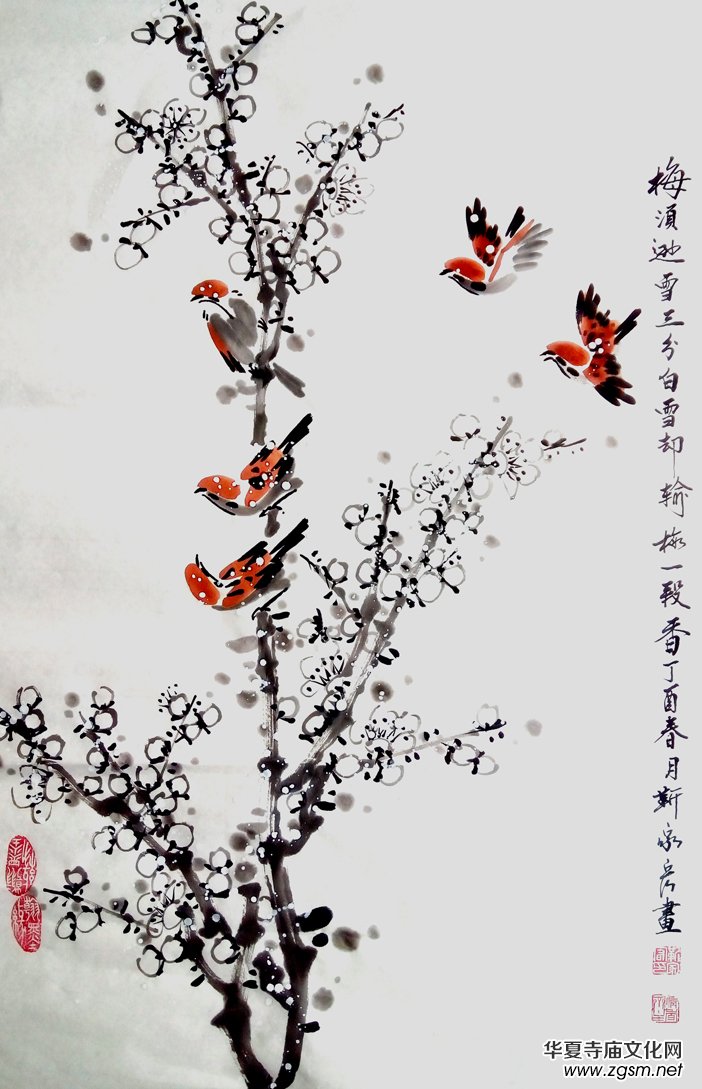 梅須遜雪三分白雪却輸梅一段香丁酉春月靳家畫
华夏寺庙文化网
www.zgsm.net